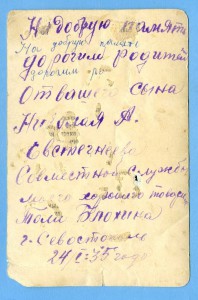 На добрую память
На добрую память
дорогим Родителям
дорогим ро
От вашего сына
Николая А.
Евстегнеева
Совместной службы
моего хорошего товарища
Толи
г. Севостополь
24/I-35 года